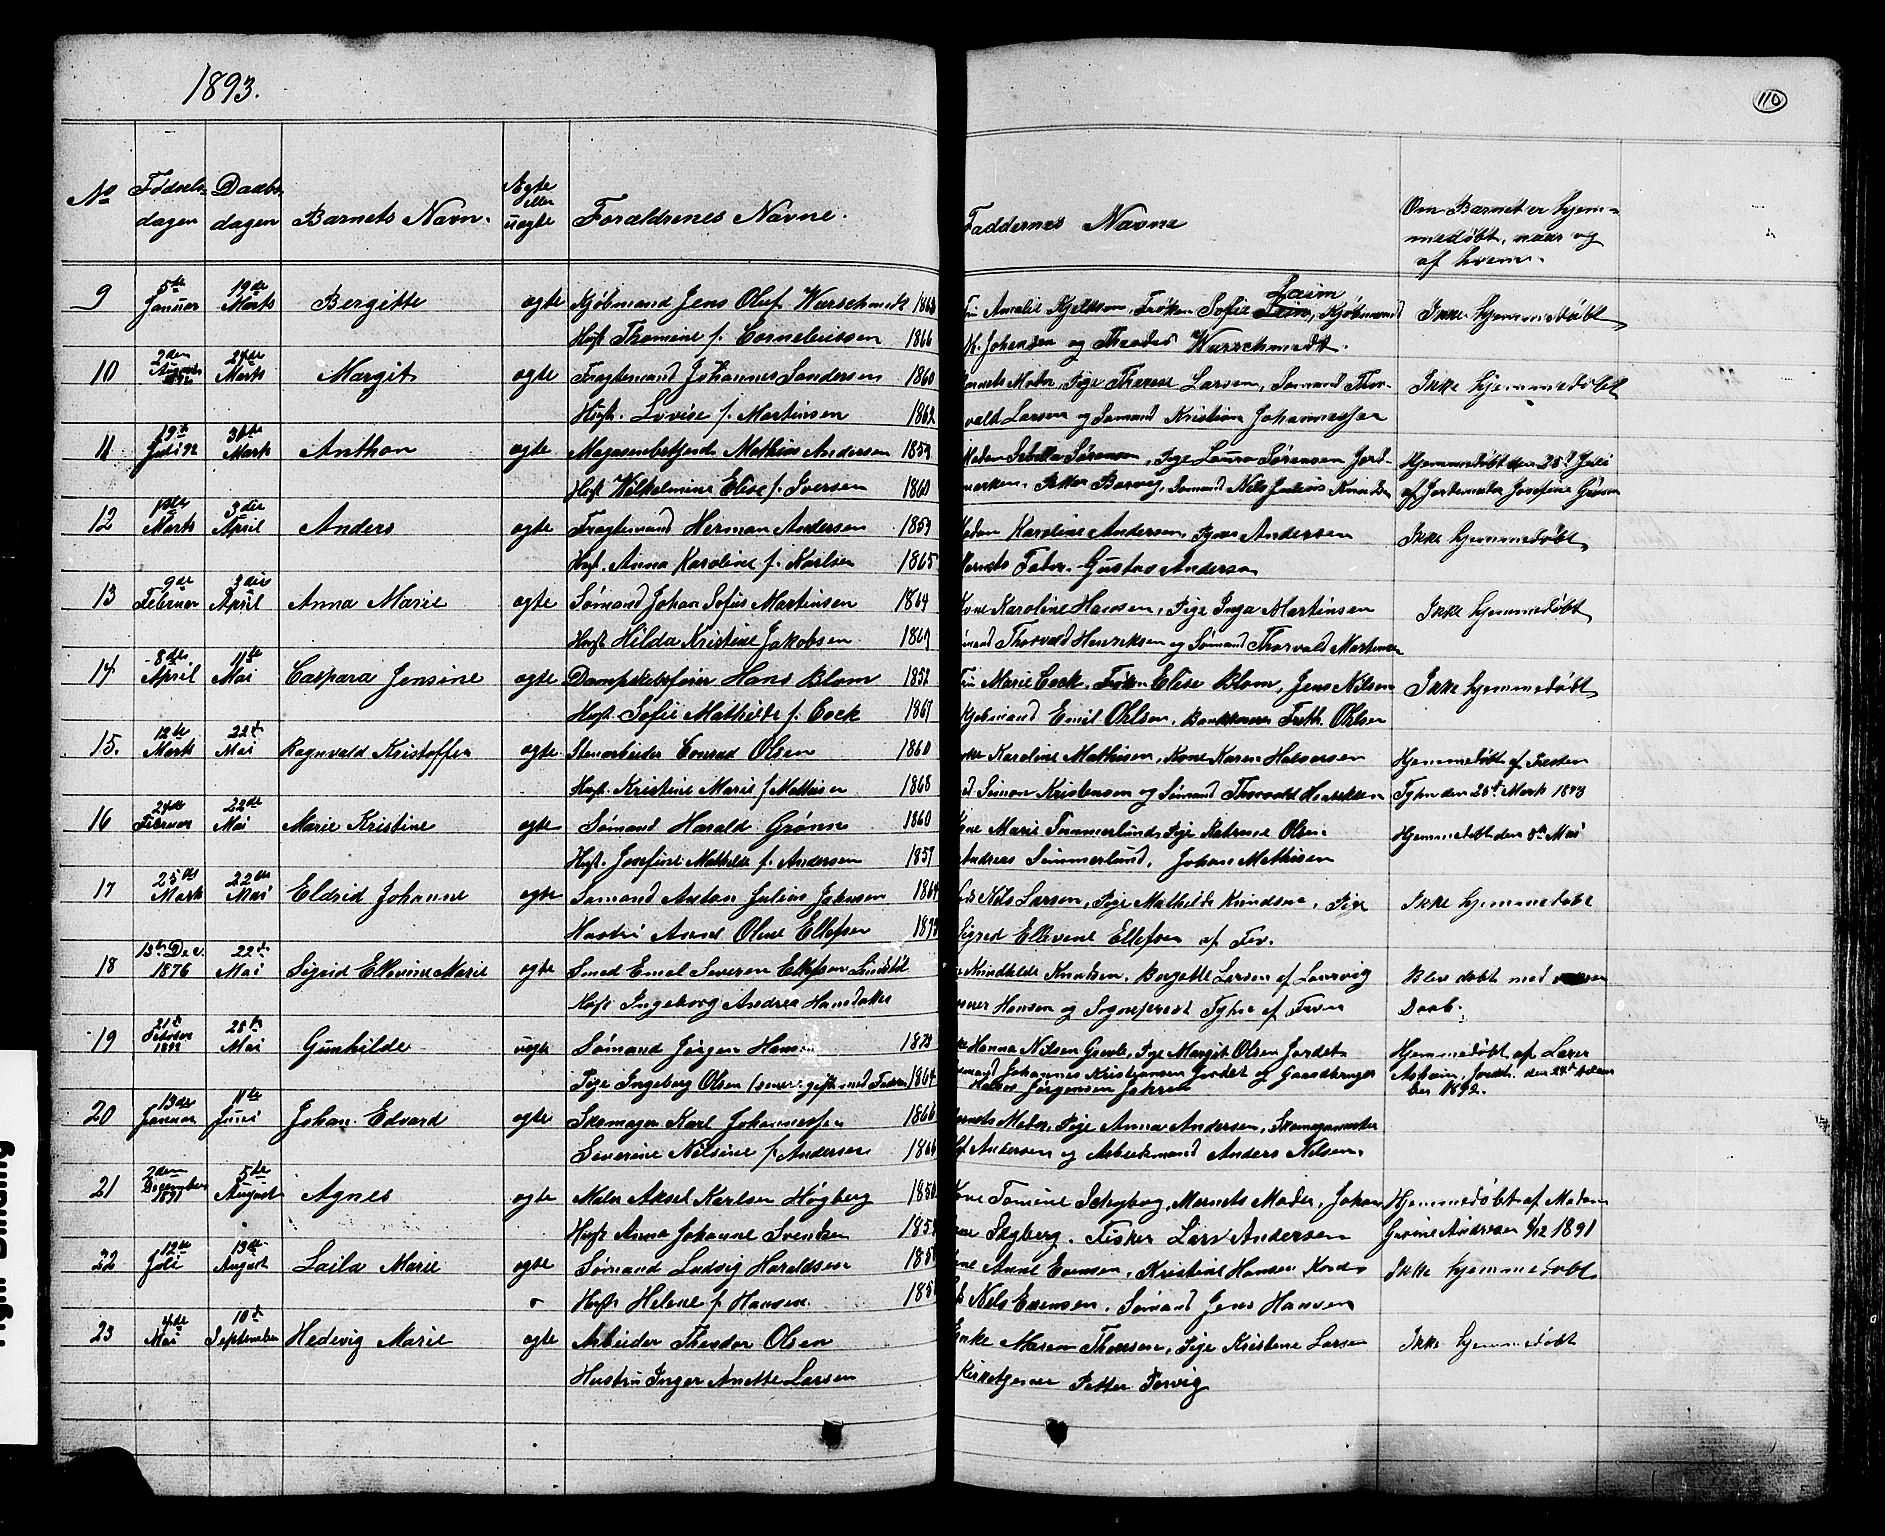 1893.
110
No Fødsels- dagen Daabs- dagen Barnets Navn. Ægte eller uægte Forældrenes Navne. Faddernes Navne Om Barnet er hjem- medøbt, naar og af hvem.
9 5te Januar 19de Marts Bergitte ægte Kjøbmand Jens Oluf Warschmedt 1863 Amalie Kjeldsen, Frøken Sofie Laim, Kjøbmand Ikke hjemmedøbt
Hust Thomine f. Corneliussen 1866 Johansen og Theodor Warschmedt.
10 2den August 1892 24de Marts Margit ægte Fragtemand Johannes Sandersen 1860 Barnets Moder, Pige Therese Larsen, Sømand Thor- Ikke hjemmedøbt
Hust. Lovise f. Martinsen 1862 vald Larsen og Sømand Kristian Johannessen
11 19de Juli 92 31te Marts Anthon ægte Magasinbetjent Mathias Andersen 1859 Madam Sørensen, Pige Laura Sørensen Jord- Hjemmedøbt den 25de Juli
Hust Wilhelmine Elise f. Iversen 1860 Petter Borvig, Sømand Nils Julius Knudsen af Jordemoder Josefine
12 Marts 3die April Anders ægte Fragtemand Herman Andersen 1859 Madam Karoline Andersen, Andersen Ikke hjemmedøbt
Hust. Anna Karoline f. Karlsen 1865 Barnets Fader. Gustav Andersen
13 9de Februar 3die April Anna Marie ægte Sømand Johan Sofus Martinsen 1864 Kone Karoline Hansen, Pige Inga Martinsen Ikke hjemmedøbt
Hust Hilda Kristine Jakobsen 1869 Thorvald Henriksen og Sømand Thorvald Martinsen
14 8de April 11te Mai Caspara Jensine ægte Dampskibsfører Hans Blom 1852 Marie Cock, Frøken Elise Blom, Jens Nilsen Ikke hjemmedøbt
Hust. Sofie Mathilde f. Cock 1861 Kjøbmand Emil Ohlsen, Fredh. Ohlsen
15. 12te Marts 22de Mai Ragnvald Kristoffer ægte Stenarbeider Conrad Olsen 1860 Karoline Mathisen, Kone Karen Halvorsen Hjemmedøbt af Presten
Hust. Kristine Marie f Mathisen 1868 Simon Kristensen og Sømand Thorvald Henriksen Tyhn den 25de Marts 1893
16 24de Februar 22de Mai Marie Kristine ægte Sømand Harald Grønn 1860 Kone Marie Tommerlund, Pige Katrine Olsen Hjemmedøbt den 8de Mai
Hust. Josefine Mathilde f. Andersen 1859 Andreas Tommerlund, Johan Mathisen
17 25de Marts 22de Mai Eldrid Johanne ægte Sømand Anton Julius Johnsen 1864 Nils Larsen, Pige Mathilde Knudsen, Pige Ikke hjemmedøbt
Hustru Anne Oline Ellefsen 1873 Sigrid Ellevine Ellefsen af Tjø.
18 15de Dec. 1876 22de Mai Sigrid Ellevine Marie ægte Smed Emil Severin Ellefsen Lindstøl Knudsen, Bergette Larsen af Laurvig Blev døbt med voksen
Hust Ingeborg Andrea Hansdatter Hansen og Sogneprest Tyhn af Tjømø Daab.
19 21de Oktober 1892 28de Mai Gunhilde uægte Sømand Jørgen Hansen 1873 Hanna Nilsen Grevle, Pige Margit Olsen Jordet Hjemmedøbt af Lærer
Pige Ingeborg Olsen (senere gift med Faderen 1864 Johannes Kristiansen Jordet og Gaardbruger Halvor Jørgensen den 24de Oktober 1892.
20 13de Januar 11te Juni Johan Edvard ægte Skomager Karl Johannessen 1866 Barnets Moder, Pige Anna Andersen, Skomagermester
Severine Nilsine f Andersen 1866 Andersen og Arbeidsmand Anders Nilsen.
21 2den December 1891 5te August Agnes ægte Maler Aksel Karlsen Høgberg 1850 Kone Tomine Skyberg, Barnets Moder, Johan Hjemmedøbt af Madam
Hust Anna Johanne Svendsen Skyberg. Fisker Lars Andersen Andersen 6/12 1891
22 12te Juli 13de August Laila Marie ægte Sømand Ludvig Haraldsen Anne Evensen, Kristine Hansen Ikke hjemmedøbt
Hust Helene f. Hansen. Nils Evensen. Sømand Jens Hansen
23 4de Mai 10de September Hedevig Marie ægte Arbeider Theodor Olsen Enke Maren Thoresen, Pige Kristine Larsen Ikke hjemmedøbt
Hustru Inger Anette Larsen Kirketjener Petter Torvig